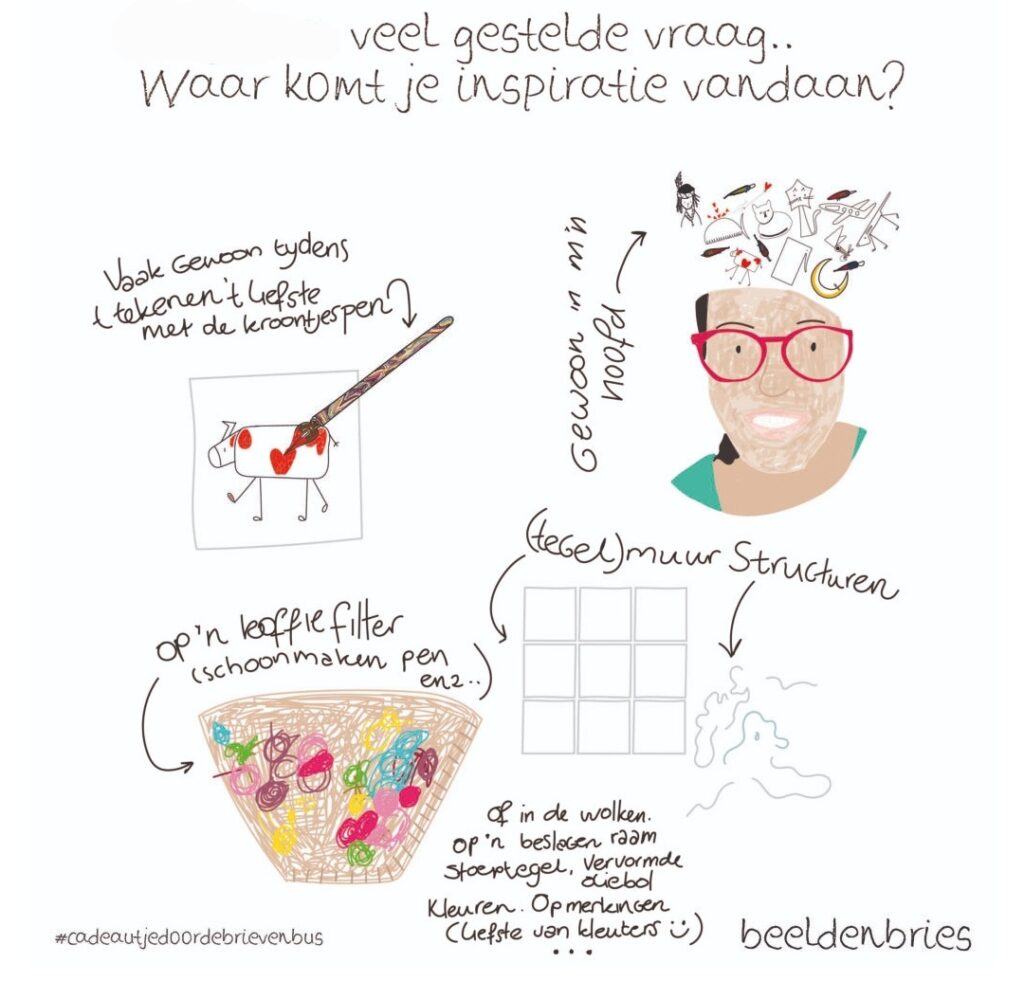 veel gestelde vraag..
Waar komt je inspiratie vandaan?
Vaak Gewoon tydens
't tekenen 't liefste
met de kroontjespen
Gewoon in m'n
hoofd
(tegel)muur Structuren
op 'n koffiefilter
(schoonmaken pen
enz..)
Of in de wolken.
op 'n beslagen raam
stoeptegel, vervormde
oliebol
Kleuren. Opmerkingen
(liefste van kleuters :))
...
#cadeautjedoordebrievenbus
beeldenbries